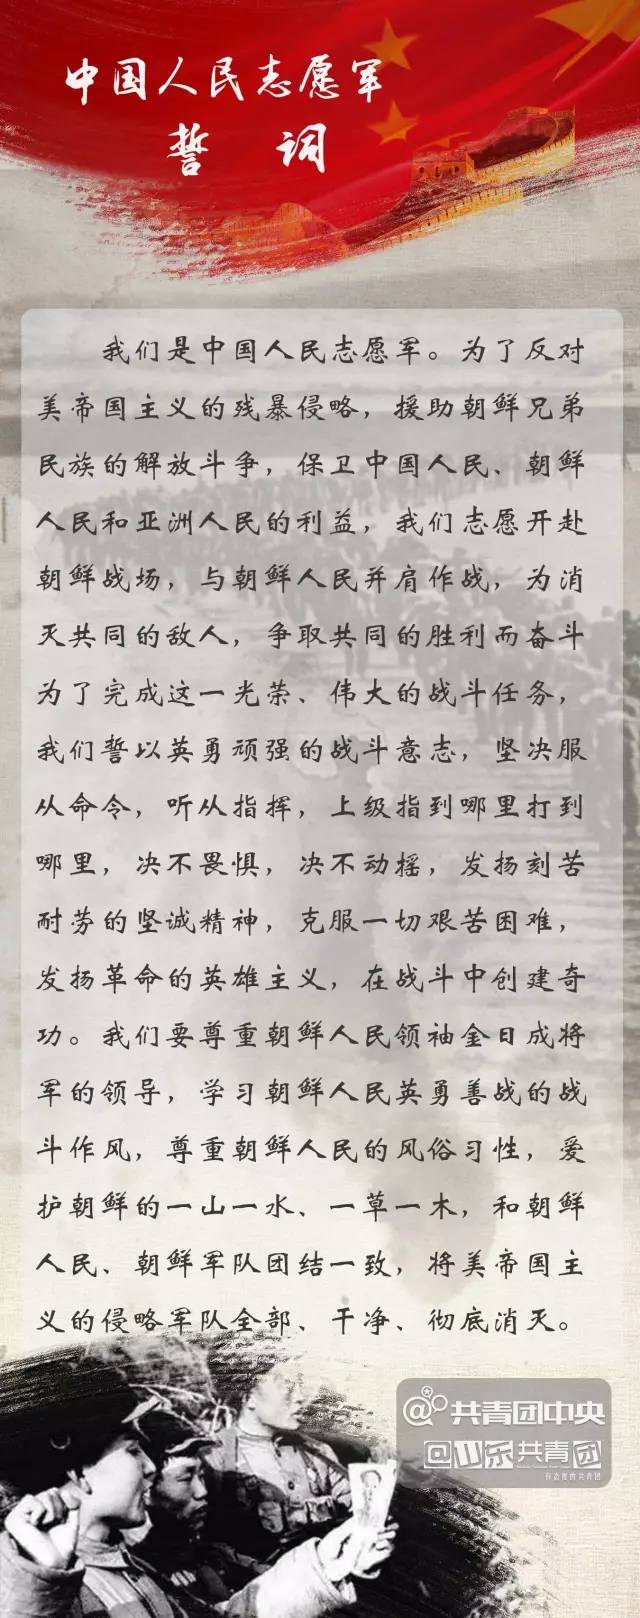 中国人民志愿军
誓 词
我们是中国人民志愿军。为了反对
美帝国主义的残暴侵略，援助朝鲜兄弟
民族的解放斗争，保卫中国人民、朝鲜
人民和亚洲人民的利益，我们志愿开赴
朝鲜战场，与朝鲜人民并肩作战，为消
灭共同的敌人，争取共同的胜利而奋斗
为了完成这一光荣、伟大的战斗任务，
我们誓以英勇顽强的战斗意志，坚决服
从命令，听从指挥，上级指到哪里打到
哪里，决不畏惧，决不动摇，发扬刻苦
耐劳的坚诚精神，克服一切艰苦困难，
发扬革命的英雄主义，在战斗中创建奇
功。我们要尊重朝鲜人民领袖金日成将
军的领导，学习朝鲜人民英勇善战的战
斗作风，尊重朝鲜人民的风俗习性，爱
护朝鲜的一山一水、一草一木，和朝鲜
人民、朝鲜军队团结一致，将美帝国主
义的侵略军队全部、干净、彻底消灭。
@共青团中央
@山东共青团
有态度的共青团